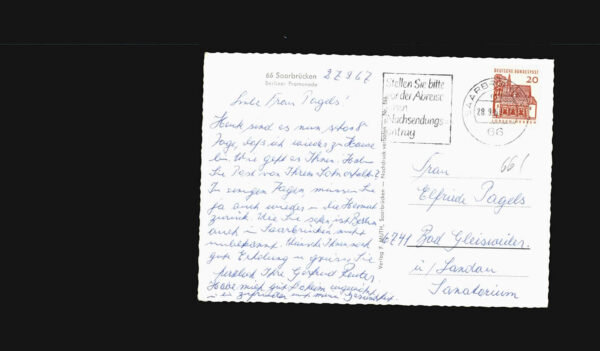 66 Saarbrücken
Berliner Promenade
27.9.67
Liebe Frau Pagels!
Heute sind es nun schon 8
Tage, daß ich wieder zu Hause
bin. Wie geht es Ihnen. Haben
Sie Post von Ihrem Sohn erhalten?
In einigen Tagen müssen Sie
ja auch wieder in die Heimat
zurück. Wie Sie sehen, ist Berlin
auch in Saarbrücken nicht
unbekannt. Wünsche Ihnen noch
gute Erholung u. grüsse Sie
herzlich Ihre Gertrud Reuter.
Habe mich gut daheim eingewöhnt
u. bin zufrieden mit meiner Gesundheit.
Verlag F. WIRTH, Saarbrücken — Nachdruck verboten — Nr.
Stellen Sie bitte
vor der Abreise
Ihren
Nachsendungs-
antrag
SAARBR
28.9.
66
DEUTSCHE BUNDESPOST
20
Frau 66!
Elfriede Pagels
6741 Bad Gleisweiler
ü/ Landau
Sanatorium